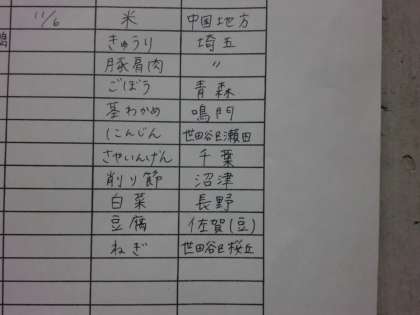 11/6 米 中国地方
きゅうり 埼玉
豚肩肉 〃
ごぼう 青森
茎わかめ 鳴門
にんじん 世田谷区瀬田
さやいんげん 千葉
削り節 沼津
白菜 長野
豆腐 佐賀(豆)
ねぎ 世田谷区桜丘